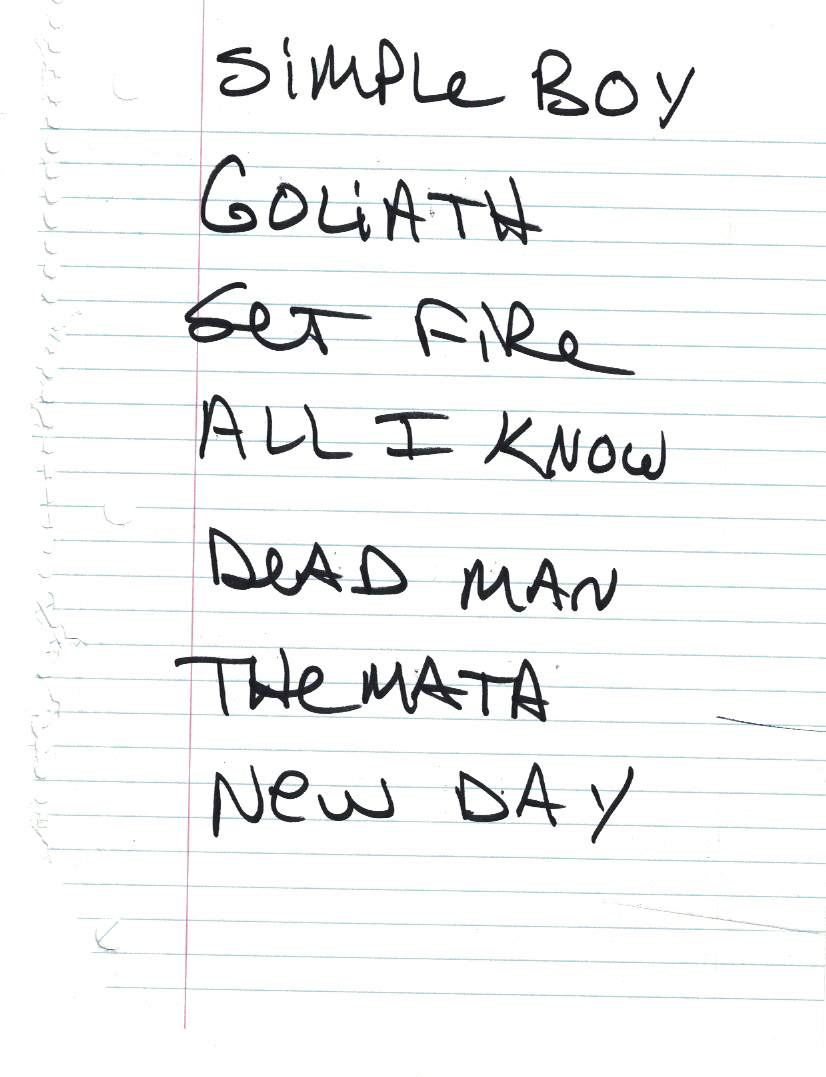 SiMPLe BOY
GOLiATH
Set FiRe
ALL I KNOW
DeAD MAN
THeMATA
New DAY